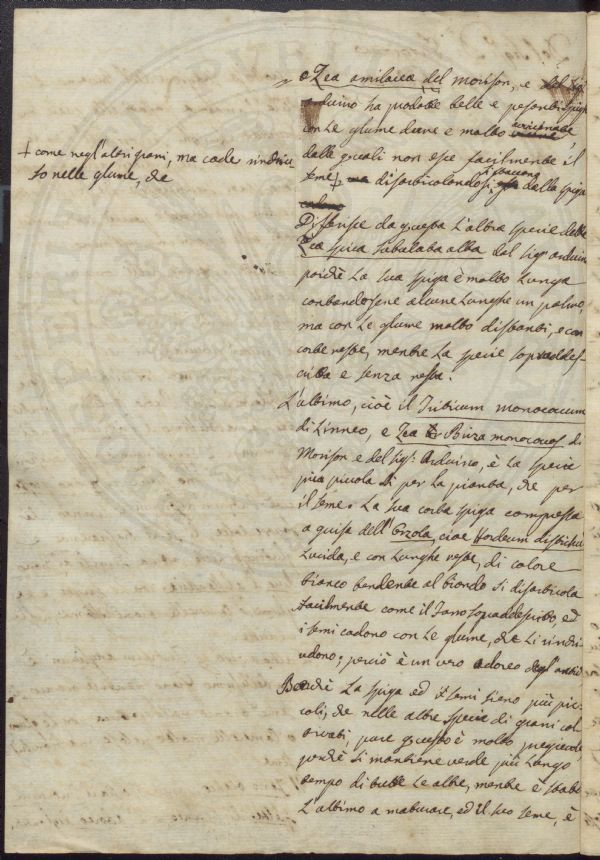 o Zea amilacea del Morison, e del Sig.r
Arduino ha prodotte belle e pesanti spighe
con le glume dure e molto avvicinate
dalle quali non esce facilmente il
seme + disarticolandosi dalla spiga
+ come negl'altri grani, ma cade rinchiu
so nelle glume, che
Differisce da questa l'altra specie detta
Zea spica subulata alba dal Sig.r Arduino
poichè la sua spiga è molto lunga
contandosene alcune lunghe un palmo,
ma con le glume molto distanti, e con
corte reste, mentre la specie sopraddes-
critta e senza resta.
L'ultimo, cioè il Triticum monococcum
di Linneo, e Zea Briza monococcos di
Morison e del Sig.r Arduino, è la specie
più piccola sì per la pianta, che per
il seme. La sua corta spiga compressa
a guisa dell'Orzola, cioè Hordeum distichu
lucida, e con lunghe reste, di colore
bianco tendente al biondo si disarticola
facilmente come il Farro sopraddescritto, ed
i semi cadono con le glume, che li rinchi
udono; perciò è un vero adoreo degl'antichi
Benchè la spiga ed i semi sieno più pic-
coli, che nelle altre specie di grani col
tivati, pure questo è molto pregievole,
perchè si mantiene verde più lungo
tempo di tutte le altre, mentre è stato
l'ultimo a maturare, ed il suo seme, è